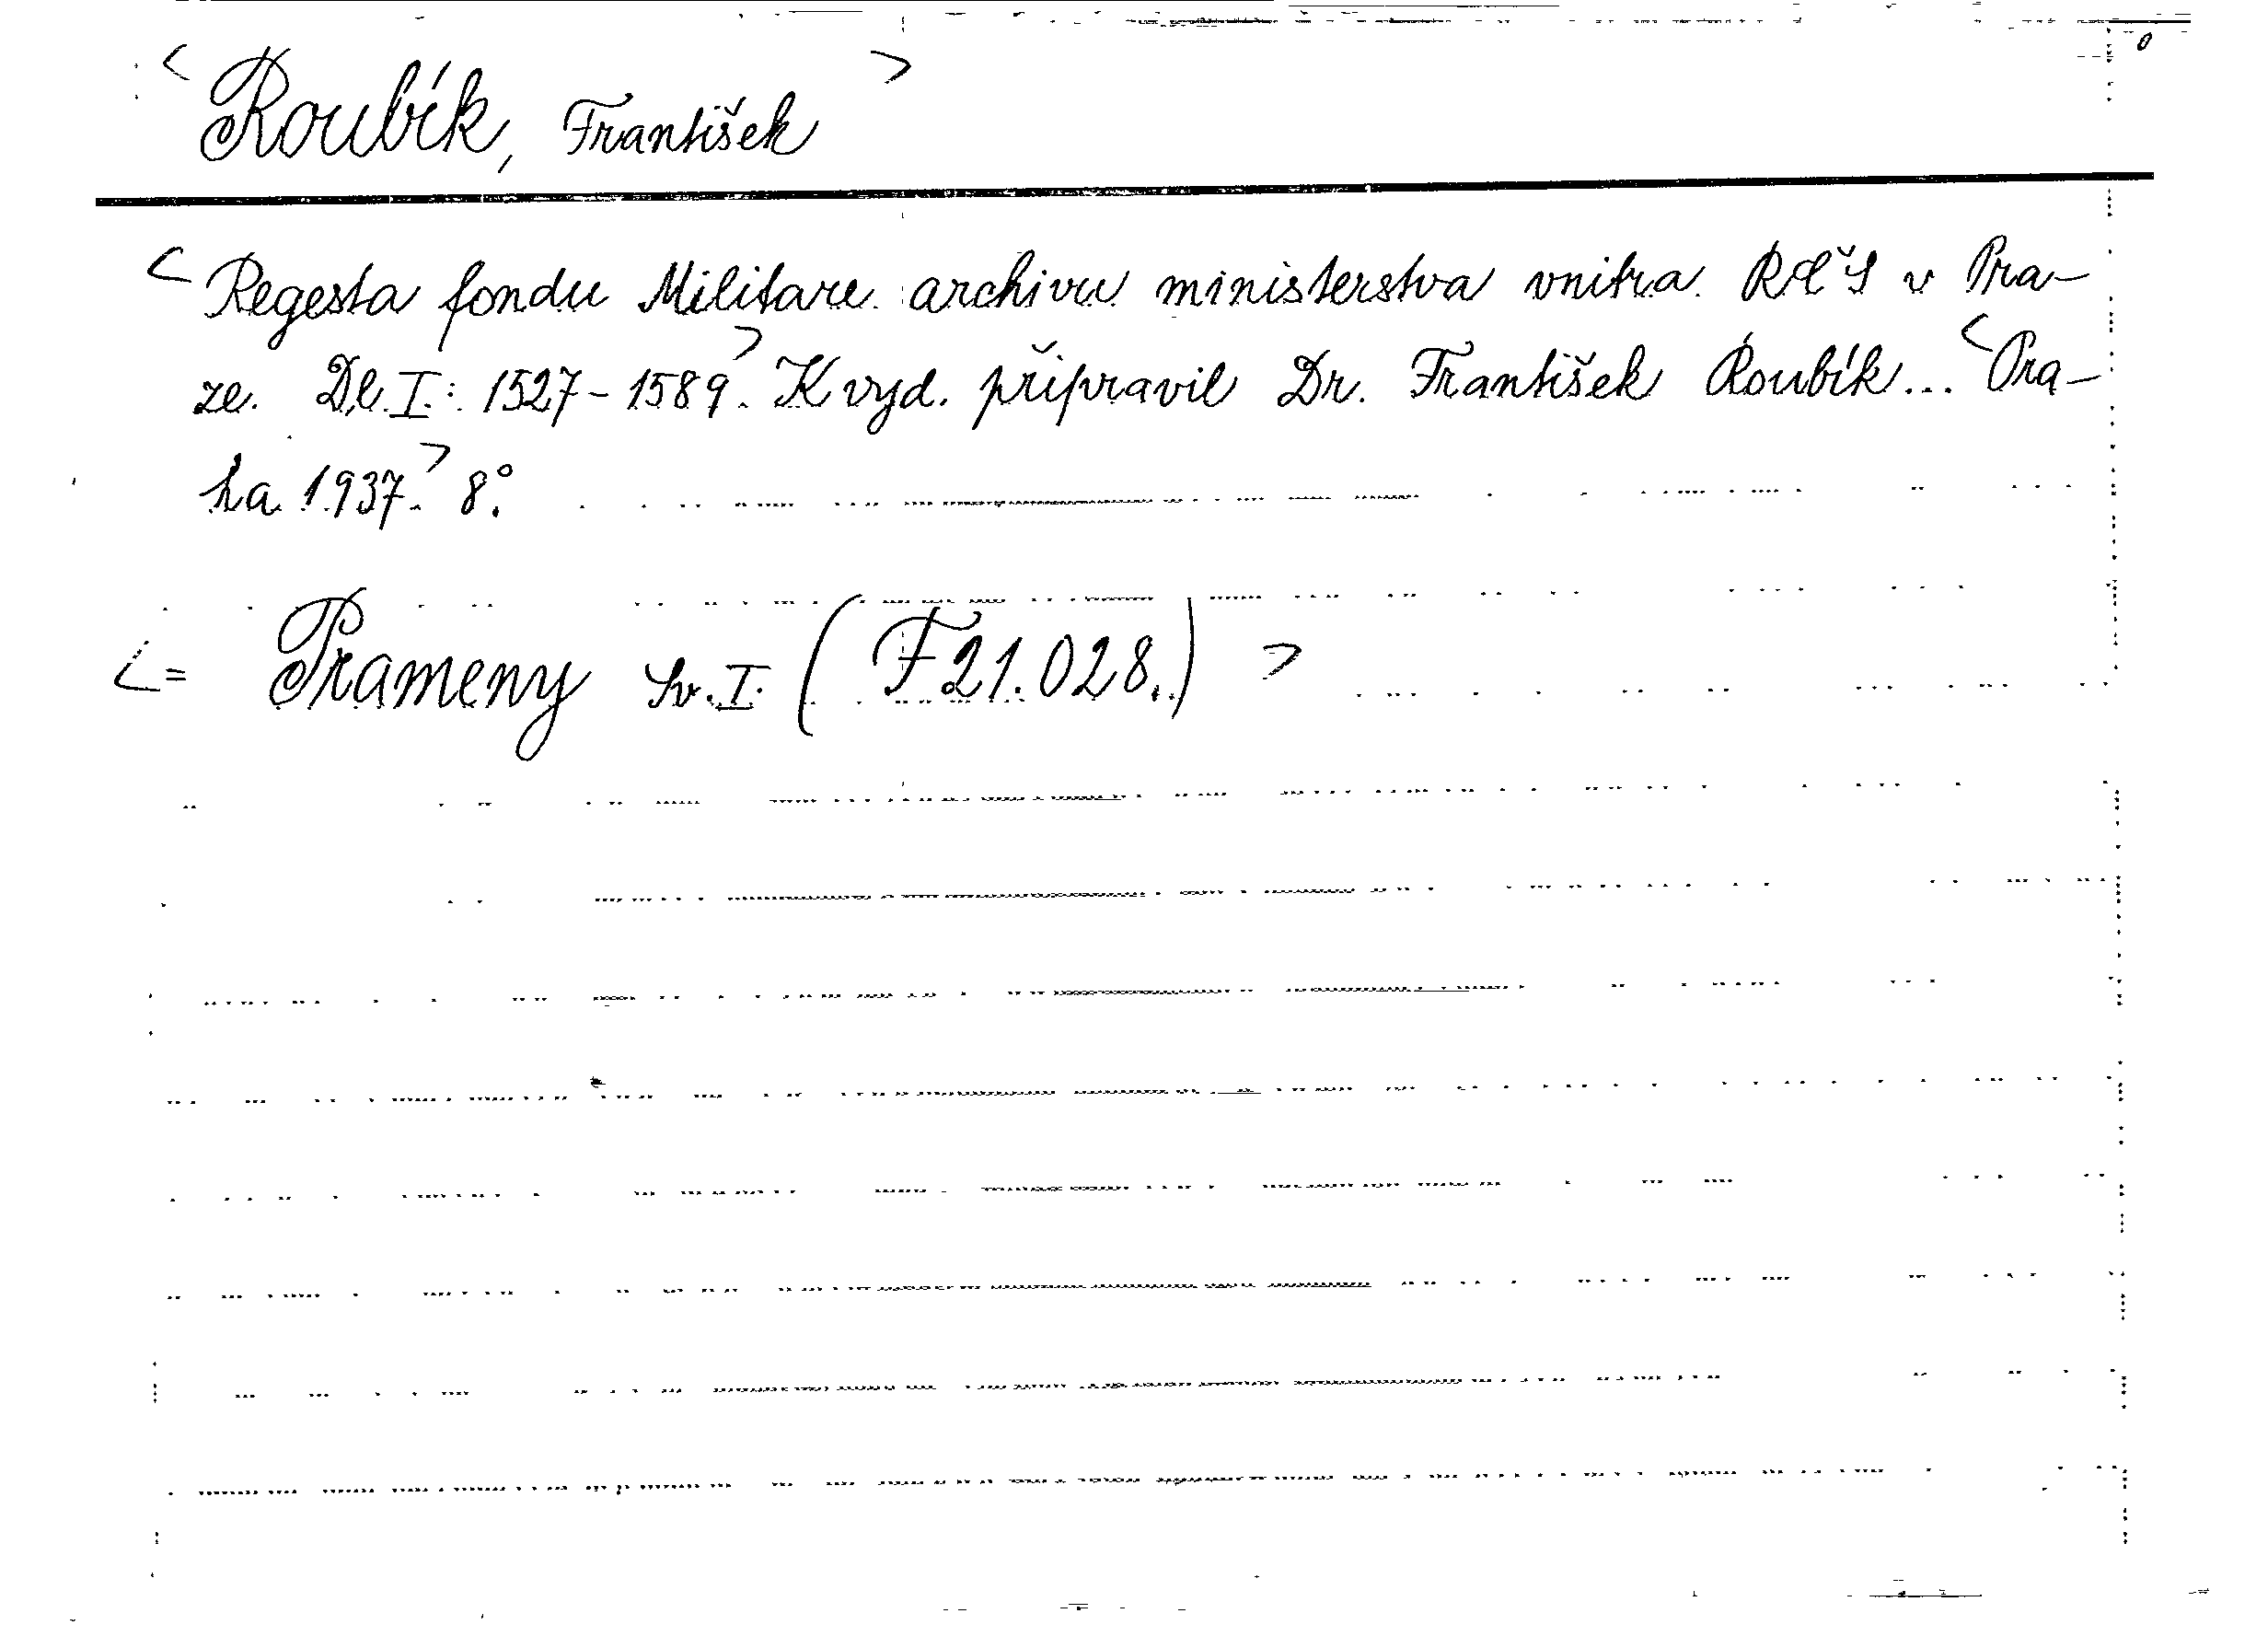 < Roubík, František >
< Regesta fondu Militare archivu ministerstva vnitra RČS v Pra-
ze. Dl. I.: 1527-1589.> K vyd. připravil Dr. František Roubík... < Pra-
ha 1937.> 8°.
< = Prameny Sv. I. (F 21.028.) >